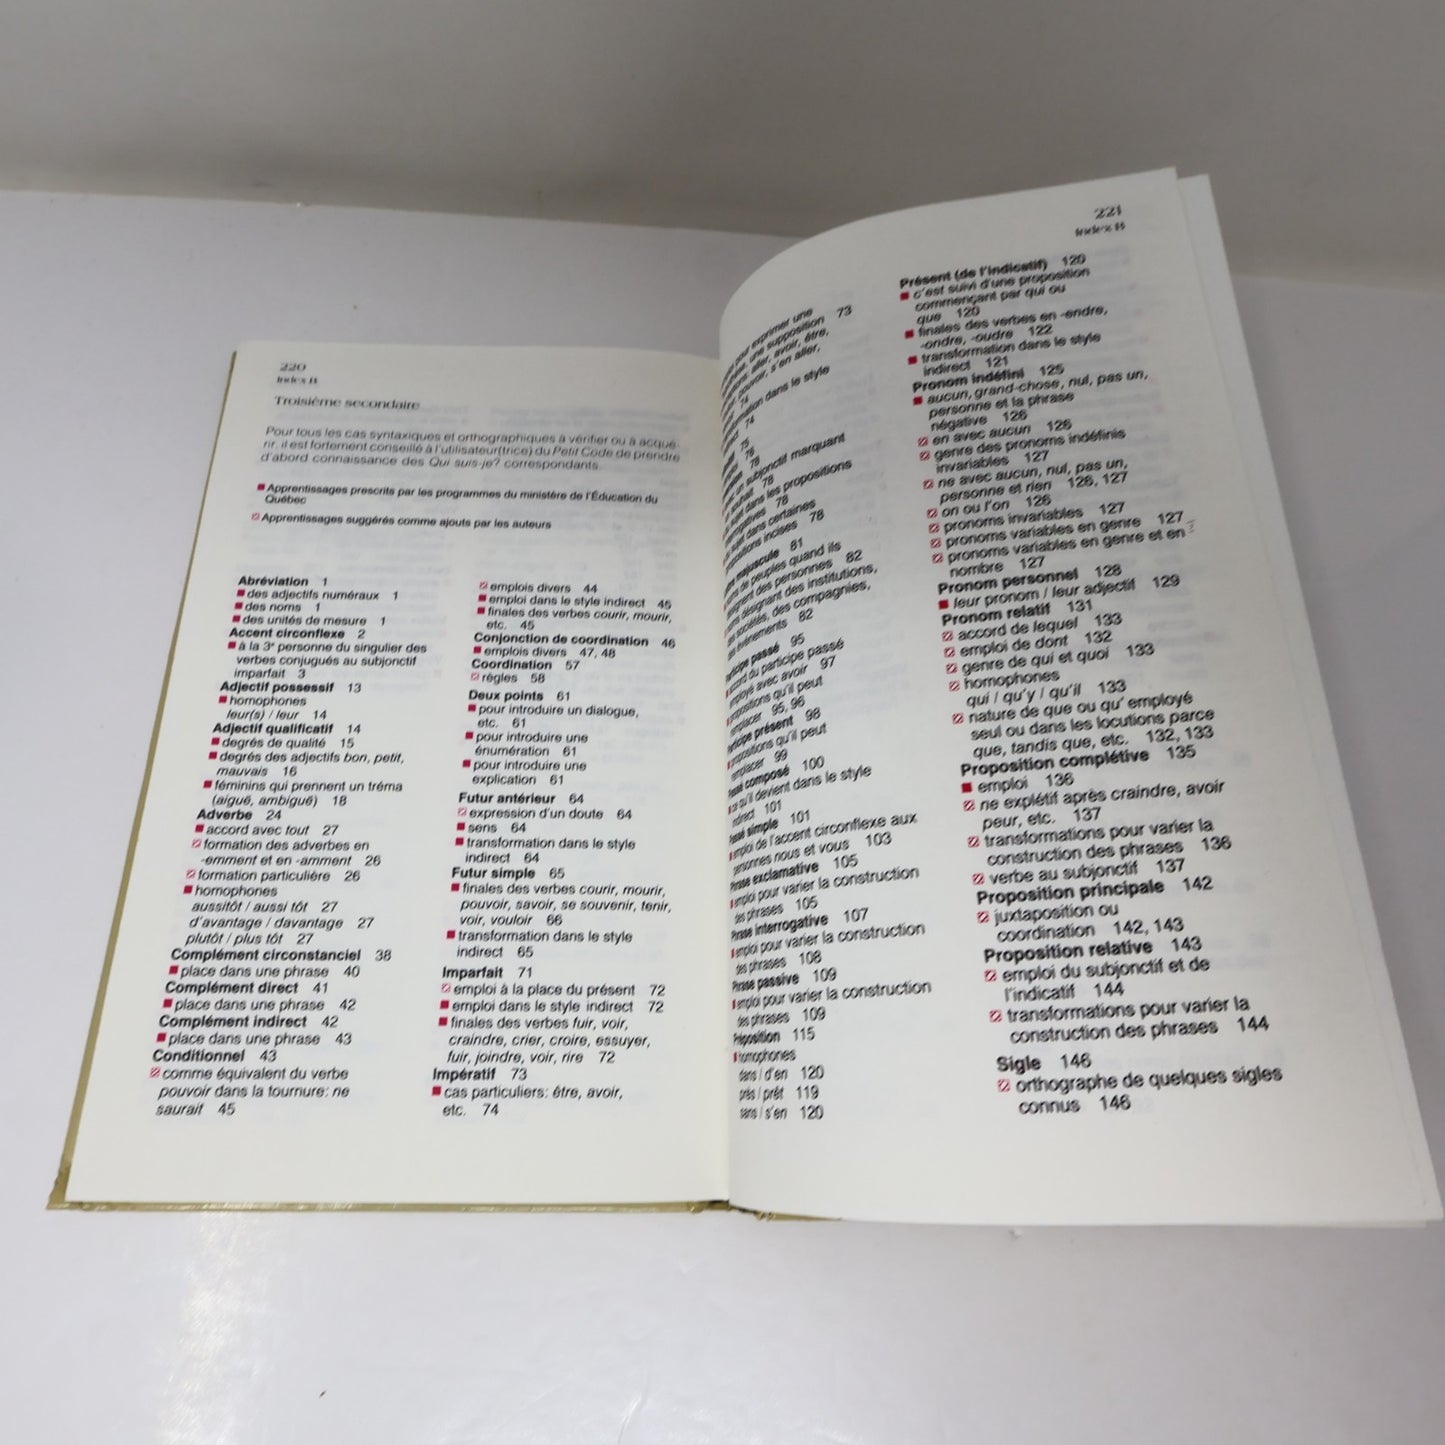 220
Index B
Troisième secondaire
Pour tous les cas syntaxiques et orthographiques à vérifier ou à acqué-
rir, il est fortement conseillé à l'utilisateur(trice) du Petit Code de prendre
d'abord connaissance des Qui suis-je? correspondants.
Apprentissages prescrits par les programmes du ministère de l'Éducation du
Québec
Apprentissages suggérés comme ajouts par les auteurs
Abréviation 1
des adjectifs numéraux 1
des noms 1
des unités de mesure 1
Accent circonflexe 2
à la 3e personne du singulier des
verbes conjugués au subjonctif
imparfait 3
Adjectif possessif 13
homophones
leur(s) / leur 14
Adjectif qualificatif 14
degrés de qualité 15
degrés des adjectifs bon, petit,
mauvais 16
féminins qui prennent un tréma
(aiguë, ambiguë) 18
Adverbe 24
accord avec tout 27
formation des adverbes en
-emment et en -amment 26
formation particulière 26
homophones
aussitôt / aussi tôt 27
d'avantage / davantage 27
plutôt / plus tôt 27
Complément circonstanciel 38
place dans une phrase 40
Complément direct 41
place dans une phrase 42
Complément indirect 42
place dans une phrase 43
Conditionnel 43
comme équivalent du verbe
pouvoir dans la tournure: ne
saurait 45
emplois divers 44
emploi dans le style indirect 45
finales des verbes courir, mourir,
etc. 45
Conjonction de coordination 46
emplois divers 47, 48
Coordination 57
règles 58
Deux points 61
pour introduire un dialogue,
etc. 61
pour introduire une
énumération 61
pour introduire une
explication 61
Futur antérieur 64
expression d'un doute 64
sens 64
transformation dans le style
indirect 64
Futur simple 65
finales des verbes courir, mourir,
pouvoir, savoir, se souvenir, tenir,
voir, vouloir 66
transformation dans le style
indirect 65
Imparfait 71
emploi à la place du présent 72
emploi dans le style indirect 72
finales des verbes fuir, voir,
craindre, crier, croire, essuyer,
fuir, joindre, voir, rire 72
Impératif 73
cas particuliers: être, avoir,
etc. 74
221
Index B
pour exprimer une
une supposition 73
aller, avoir, être,
pouvoir, s'en aller,
74
dans le style
74
75
76
78
un subjonctif marquant
souhait 78
dans les propositions
78
sujet dans certaines
incises 78
majuscule 81
de peuples quand ils
désignent des personnes 82
noms désignant des institutions,
des sociétés, des compagnies,
des événements 82
Participe passé 95
accord du participe passé
employé avec avoir 97
propositions qu'il peut
remplacer 95, 96
Participe présent 98
propositions qu'il peut
remplacer 99
Passé composé 100
ce qu'il devient dans le style
indirect 101
Passé simple 101
emploi de l'accent circonflexe aux
personnes nous et vous 103
Phrase exclamative 105
emploi pour varier la construction
des phrases 105
Phrase interrogative 107
emploi pour varier la construction
des phrases 108
Phrase passive 109
emploi pour varier la construction
des phrases 109
Préposition 115
homophones
dans / d'en 120
près / prêt 119
sans / s'en 120
Présent (de l'indicatif) 120
c'est suivi d'une proposition
commençant par qui ou
que 120
finales des verbes en -endre,
-ondre, -oudre 122
transformation dans le style
indirect 121
Pronom indéfini 125
aucun, grand-chose, nul, pas un,
personne et la phrase
négative 126
en avec aucun 126
genre des pronoms indéfinis
invariables 127
ne avec aucun, nul, pas un,
personne et rien 126, 127
on ou l'on 126
pronoms invariables 127
pronoms variables en genre 127
pronoms variables en genre et en
nombre 127
Pronom personnel 128
leur pronom / leur adjectif 129
Pronom relatif 131
accord de lequel 133
emploi de dont 132
genre de qui et quoi 133
homophones
qui / qu'y / qu'il 133
nature de que ou qu' employé
seul ou dans les locutions parce
que, tandis que, etc. 132, 133
Proposition complétive 135
emploi 136
ne explétif après craindre, avoir
peur, etc. 137
transformations pour varier la
construction des phrases 136
verbe au subjonctif 137
Proposition principale 142
juxtaposition ou
coordination 142, 143
Proposition relative 143
emploi du subjonctif et de
l'indicatif 144
transformations pour varier la
construction des phrases 144
Sigle 146
orthographe de quelques sigles
connus 146